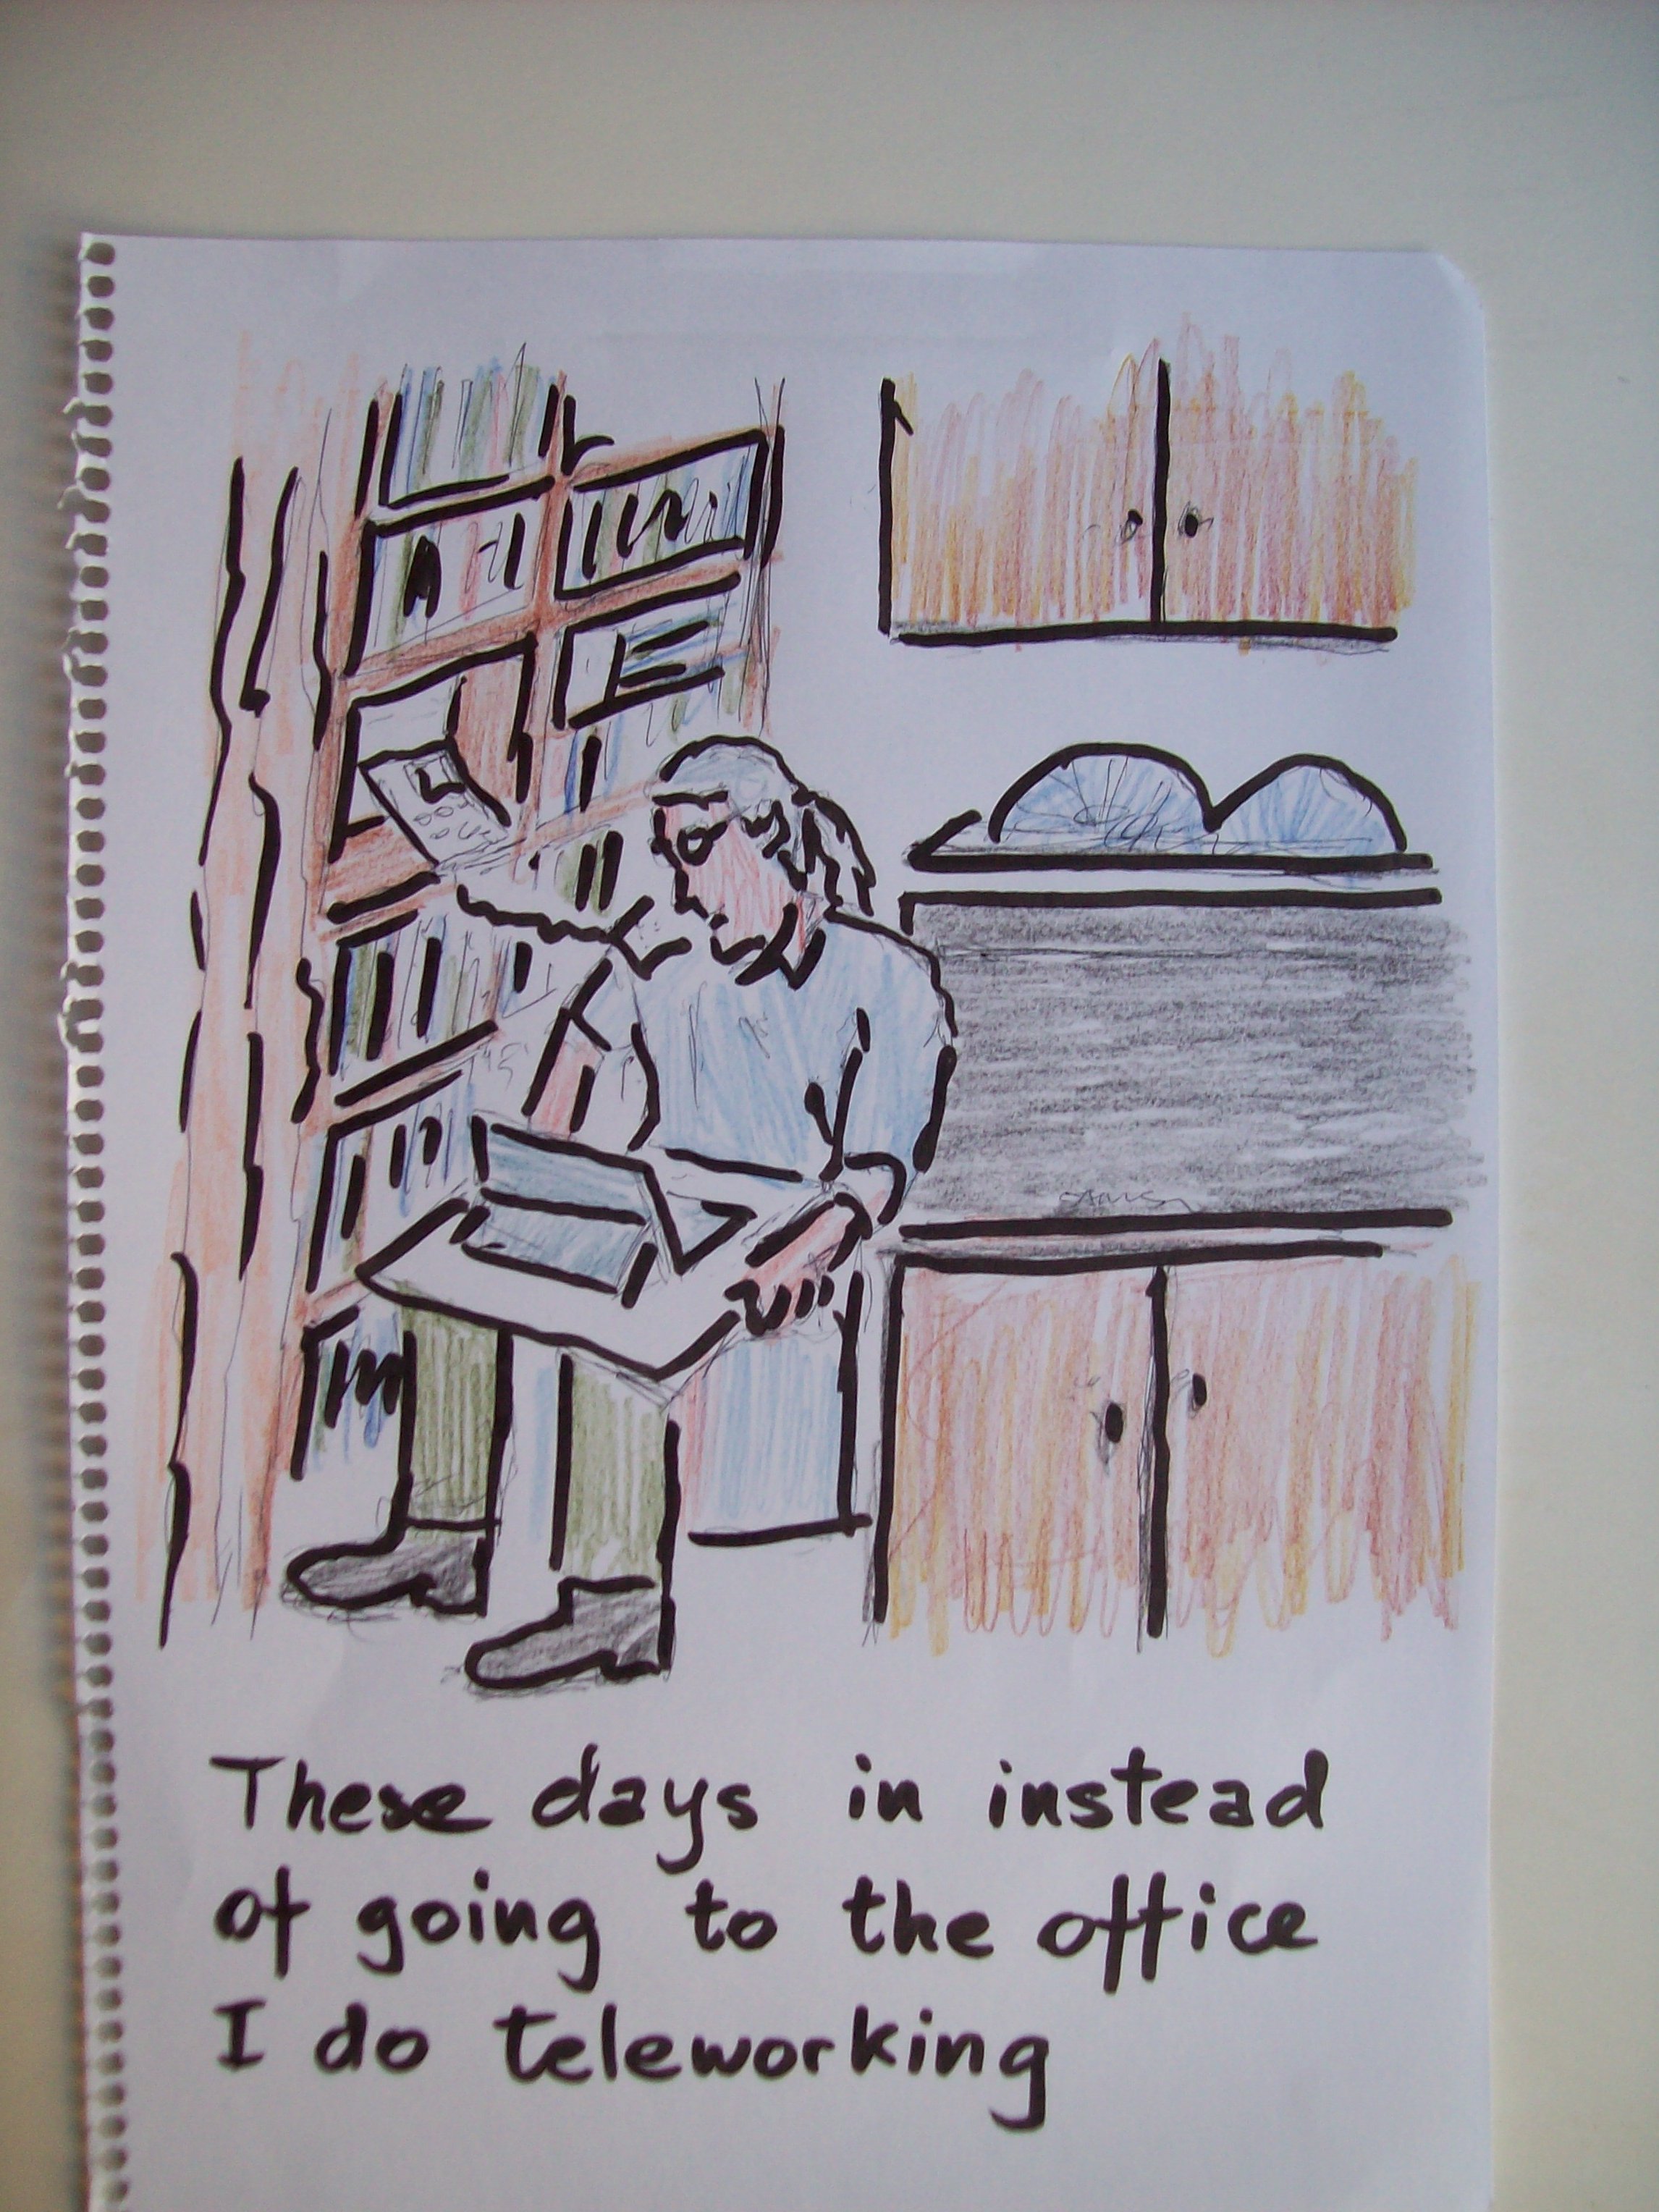 These days in instead
of going to the office
I do teleworking